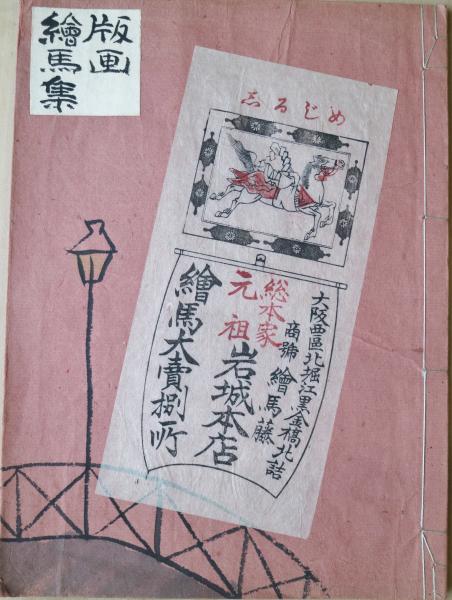 版画
繪馬集
めじるし
大阪西區北堀江黑金橋北詰
商號 繪馬藤
総本家
元祖
岩城本店
繪馬大賣捌所